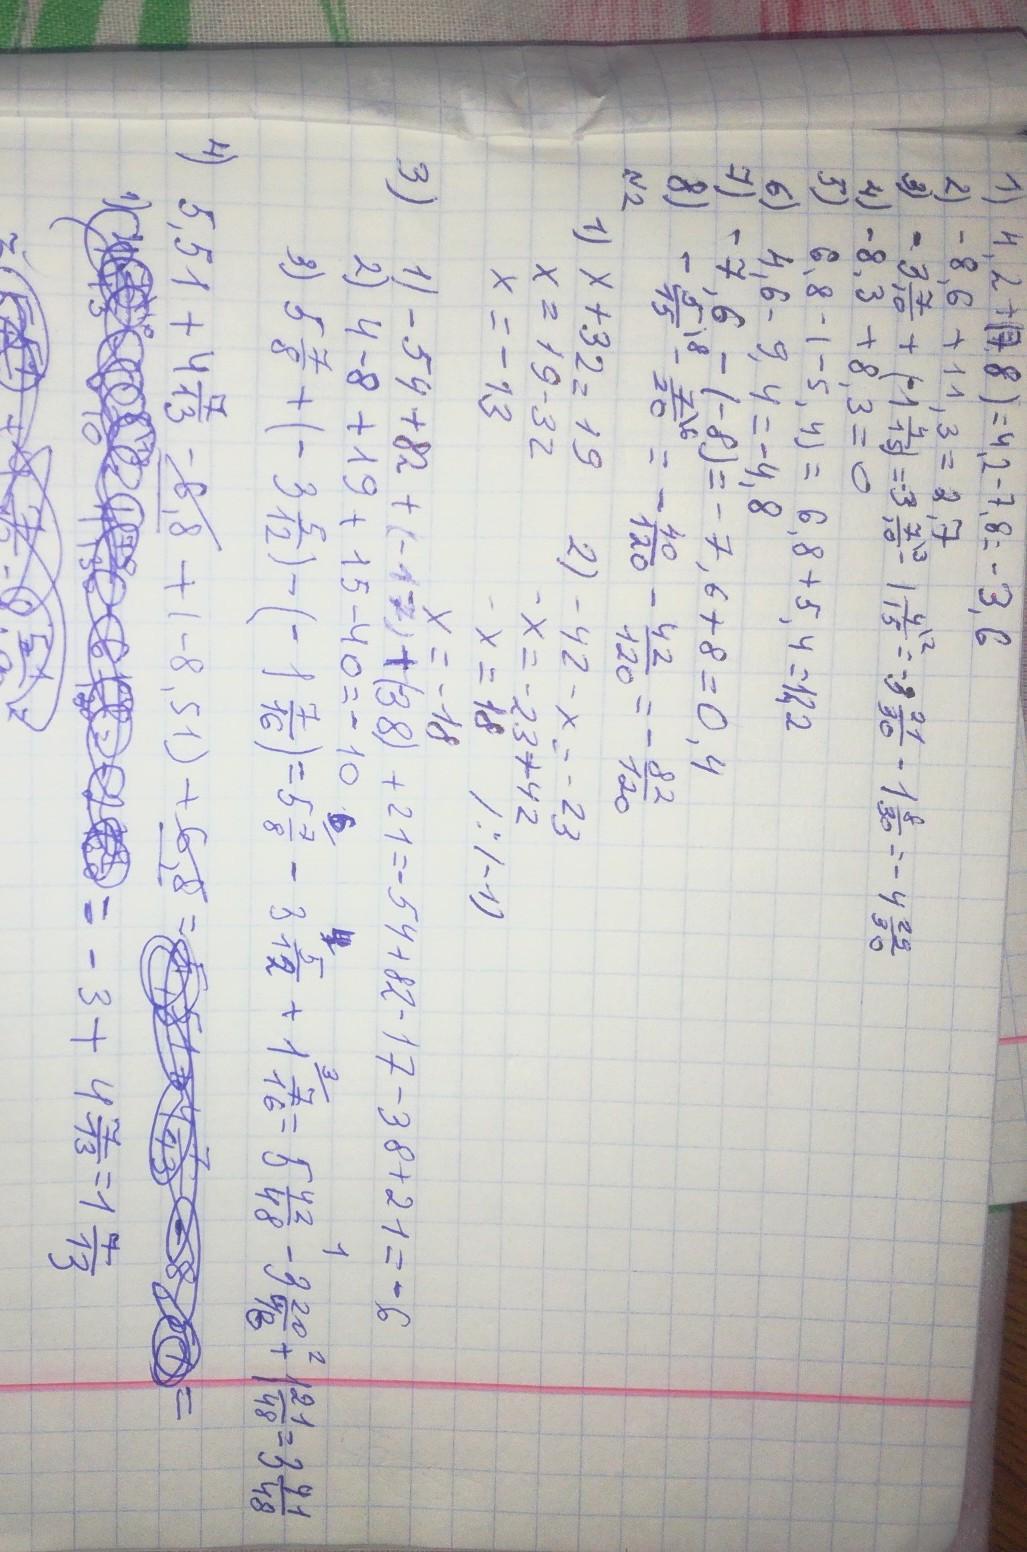 1) 4,2+(-7,8)=4,2-7,8=-3,6
2) -8,6+11,3=2,7
3) -3 7/10 + (-1 4/15)=-3 7/10 \3 - 1 4/15 \2 = -3 21/30 - 1 8/30 = -4 29/30
4) -8,3+8,3=0
5) 6,8-(-5,4)= 6,8+5,4=12,2
6) 4,6-9,4=-4,8
7) -7,6-(-8)=-7,6+8=0,4
8) -5/15 \8 - 7/20 \6 = -40/120 - 42/120 = -82/120
№2
1) x+32=19
x=19-32
x=-13
2) -42-x=-23
-x=-23+42
-x=18 /:(-1)
x=-18
3) 1) -54+82+(-17)+(38)+21=-54+82-17-38+21=-6
2) 4-8+19+15-40=-10
3) 5 7/8 + (-3 5/12) - (-1 7/16) = 5 7/8 \6 - 3 5/12 \4 + 1 7/16 \3 = 5 42/48 - 3 20/48 + 1 21/48 = 3 91/48
4) 5,51+4 7/13 -8,8+(-8,51)+6,8=
= -3+4 7/13 = 1 7/13